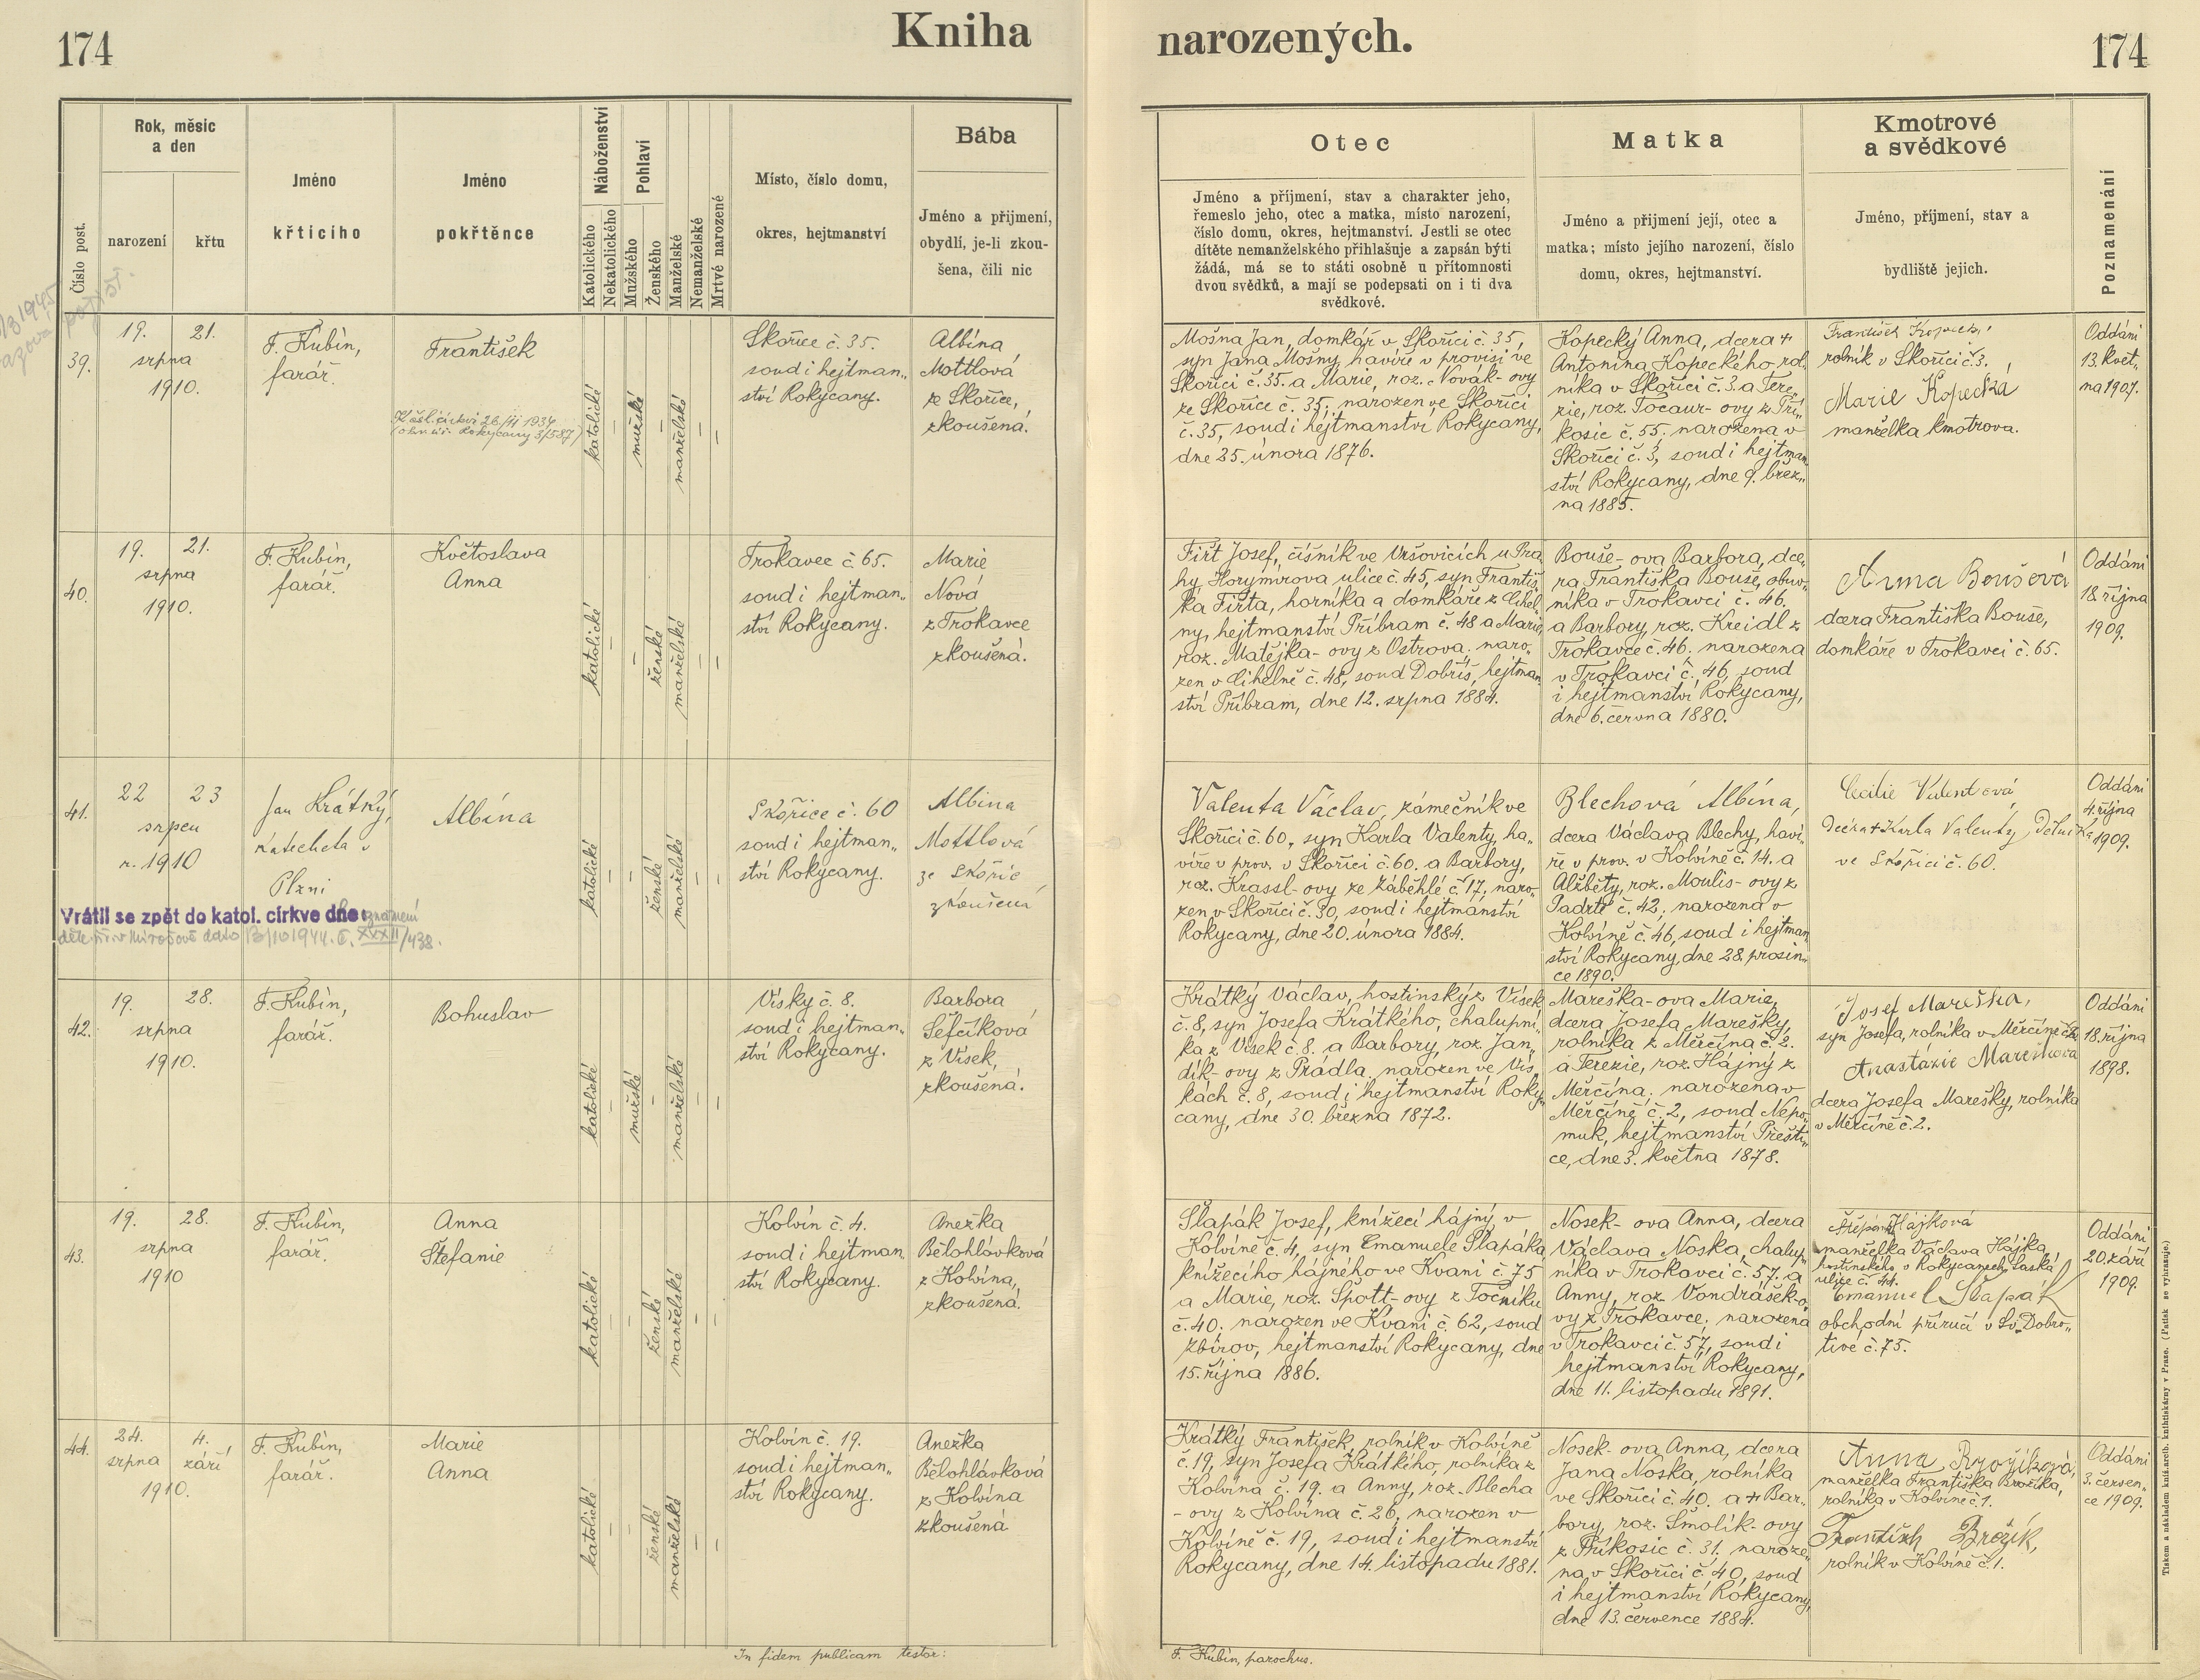 174
Kniha
narozených.
174
Číslo post.
Rok, měsíc
a den
narození
křtu
Jméno
křticího
Jméno
pokřtěnce
Náboženství
Katolického
Nekatolického
Pohlaví
Mužského
Ženského
Manželské
Nemanželské
Mrtvé narozené
Místo, číslo domu,
okres, hejtmanství
Bába
Jméno a přijmení,
obydlí, je-li zkou-
šena, čili nic
Otec
Jméno a příjmení, stav a charakter jeho,
řemeslo jeho, otec a matka, místo narození,
číslo domu, okres, hejtmanství. Jestli se otec
dítěte nemanželského přihlašuje a zapsán býti
žádá, má se to státi osobně u přítomnosti
dvou svědků, a mají se podepsati on i ti dva
svědkové.
Matka
Jméno a přijmení její, otec a
matka; místo jejího narození, číslo
domu, okres, hejtmanství.
Kmotrové
a svědkové
Jméno, příjmení, stav a
bydliště jejich.
Poznamenání
39.
19. 21.
srpna
1910.
F. Kubín,
farář.
František
26/II 1934
Rokycany 3/587)
katolické
–
mužské
–
manželské
–
–
Skořice č. 35.
soud i hejtman„
ství Rokycany.
Albína
Mottlová
ze Skořice,
zkoušená.
Mošna Jan, domkář v Skořici č. 35,
syn Jana Mošny, havíře v provisi ve
Skořici č. 35. a Marie, roz. Novák-ovy
ze Skořice č. 35; narozen ve Skořici
č. 35, soud i hejtmanství Rokycany,
dne 25. února 1876.
Kopecký Anna, dcera +
Antonína Kopeckého, rol„
níka v Skořici č. 3. a Tere„
zie, roz. Tocaur-ovy z Pří„
kosic č. 55, narozena v
Skořici č. 3, soud i hejtman„
ství Rokycany, dne 9. břez„
na 1885.
František Kopecký
rolník v Skořici č. 3.
Marie Kopecká
manželka kmotrova.
Oddáni
13. květ„
na 1907.
40.
19. 21.
srpna
1910.
F. Kubín,
farář.
Květoslava
Anna
katolické
–
–
ženské
manželské
–
–
Trokavec č. 65.
soud i hejtman„
ství Rokycany.
Marie
Nová
z Trokavce
zkoušená.
Fiřt Josef, číšník ve Vršovicích u Pra„
hy, Horymírova ulice č. 45, syn Františ„
ka Fiřta, horníka a domkáře z Cihel„
ny, hejtmanství Příbram č. 48 a Marie,
roz. Matějka-ovy z Ostrova; naro„
zen v Cihelně č. 48, soud Dobříš, hejtman„
ství Příbram, dne 12. srpna 1884.
Bouše-ova Barbora, dce„
ra Františka Bouše, obuv„
níka v Trokavci č. 46.
a Barbory, roz. Kreidl z
Trokavce č. 46. narozena
v Trokavci č. 46, soud
i hejtmanství Rokycany,
dne 6. června 1880.
Anna Boušová
dcera Františka Bouše,
domkáře v Trokavci č. 65.
Oddáni
18. října
1909.
41.
22 23
srpen
r. 1910
Jan Krátký,
katecheta v
Plzni
Albína
Vrátil se zpět do katol. církve dne:
katolické
–
–
ženské
manželské
–
–
Skořice č. 60
soud i hejtman„
ství Rokycany.
Albina
Mottlová
ze Skořic
zkoušená
Valenta Václav, zámečník ve
Skořici č. 60, syn Karla Valenty, ha„
víře v prov. v Skořici č. 60. a Barbory,
roz. Krassl-ovy ze Záběhlé č. 17, naro„
zen v Skořici č. 30, soud i hejtmanství
Rokycany, dne 20. února 1884.
Blechová Albína,
dcera Václava Blechy, haví„
ře v prov. v Kolvíně č. 14. a
Alžběty, roz. Moulis-ovy z
Padrtě č. 42; narozena v
Kolvíně č. 46, soud i hejtman
ství Rokycany, dne 28. prosin„
ce 1890.
Cecilie Valentová
dcera + Karla Valenty, dělníka
ve Skořici č. 60.
Oddáni
4. října
1909.
42.
19. 28.
srpna
1910.
F. Kubín,
farář.
Bohuslav
katolické
–
mužské
–
manželské
–
–
Vísky č. 8.
soud i hejtman„
ství Rokycany.
Barbora
Šefčíková
z Vísek,
zkoušená.
Krátký Václav, hostinský z Vísek
č. 8, syn Josefa Krátkého, chalupní„
ka z Vísek č. 8. a Barbory, roz. Jan„
dík-ovy z Prádla, narozen ve Vís„
kách č. 8, soud i hejtmanství Roky„
cany, dne 30. března 1872.
Mareška-ova Marie,
dcera Josefa Marešky,
rolníka z Měrčína č. 2.
a Terezie, roz. Hájný z
Měrčína; narozena v
Měrčíně č. 2, soud Nepo„
muk, hejtmanství Přešti„
ce, dne 3. května 1878.
Josef Mareška,
syn Josefa, rolníka v Měrčíně č. 2.
Anastázie Marešková
dcera Josefa Marešky, rolníka
v Měrčíně č. 2.
Oddáni
18. října
1898.
43.
19. 28.
srpna
1910
F. Kubín,
farář.
Anna
Štefanie
katolické
–
–
ženské
manželské
–
–
Kolvín č. 4.
soud i hejtman
ství Rokycany.
Anežka
Bělohlávková
z Kolvína,
zkoušená.
Šlapák Josef, knížecí hájný v
Kolvíně č. 4, syn Emanuele Šlapáka
knížecího hájného ve Kvani č. 75
a Marie, roz. Špott-ovy z Točníku
č. 40. narozen ve Kvani č. 62, soud
Zbirov, hejtmanství Rokycany, dne
15. října 1886.
Nosek-ova Anna, dcera
Václava Noska, chalup„
níka v Trokavci č. 57. a
Anny, roz. Vondrášek-o„
vy z Trokavce; narozena
v Trokavci č. 57, soud i
hejtmanství Rokycany,
dne 11. listopadu 1891.
Štěpánka Hájková
manželka Václava Hájka
hostinského v Rokycanech, Saská
ulice č. 44.
Emanuel Šlapák
obchodní příručí v Sv. Dobro„
tivé č. 75.
Oddáni
20. září
1909.
44.
24. 4.
srpna září
1910.
F. Kubín,
farář.
Marie
Anna
katolické
–
–
ženské
manželské
–
–
Kolvín č. 19.
soud i hejtman„
ství Rokycany.
Anežka
Bělohlávková
z Kolvína
zkoušená
Krátký František, rolník v Kolvíně
č. 19, syn Josefa Krátkého, rolníka z
Kolvína č. 19. a Anny, roz. Blecha
-ovy z Kolvína č. 26, narozen v
Kolvíně č. 19, soud i hejtmanství
Rokycany, dne 14. listopadu 1881.
Nosek-ova Anna, dcera
Jana Noska, rolníka
ve Skořici č. 40. a + Bar„
bory, roz. Smolík-ovy
z Příkosic č. 31. naroze„
na v Skořici č. 40, soud
i hejtmanství Rokycany,
dne 13. července 1884.
Anna Brožíková,
manželka Františka Brožíka,
rolníka v Kolvíně č. 1.
František Brožík,
rolník v Kolvíně č. 1.
Oddáni
3. červen„
ce 1909.
In fidem publicam testor:
F. Kubín, parochus.
Tiskem a nákladem kníž. arcib. knihtiskárny v Praze. (Patisk se vyhrazuje.)